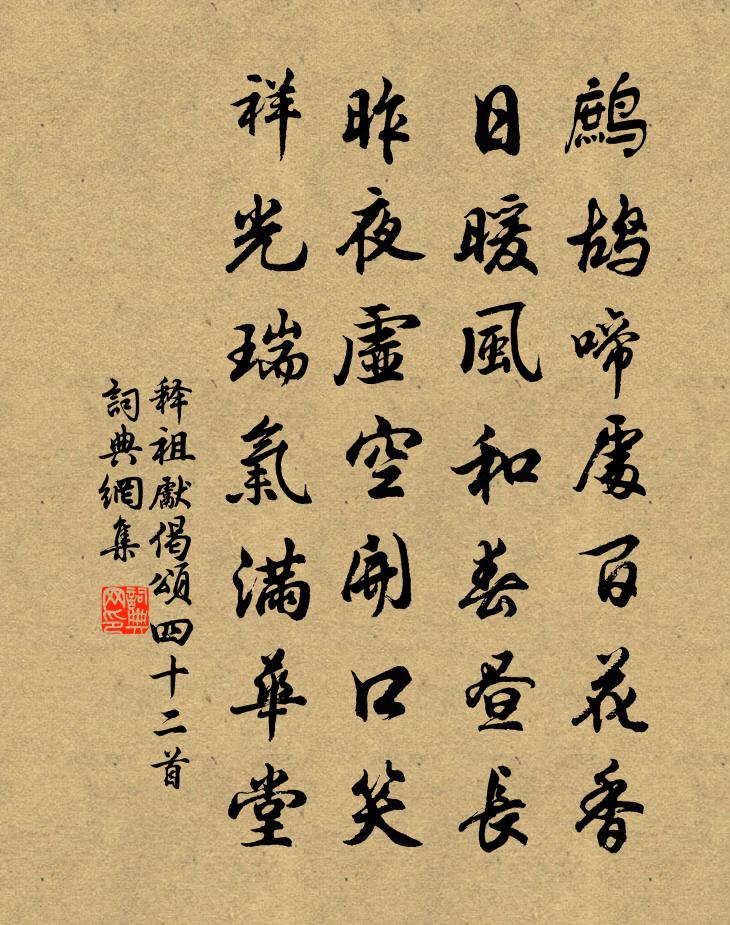 鷓鴣啼處百花香
日暖風和春晝長
昨夜虛空開口笑
祥光瑞氣滿華堂
释祖獻偈頌四十二首
詞典網集
詞典网印